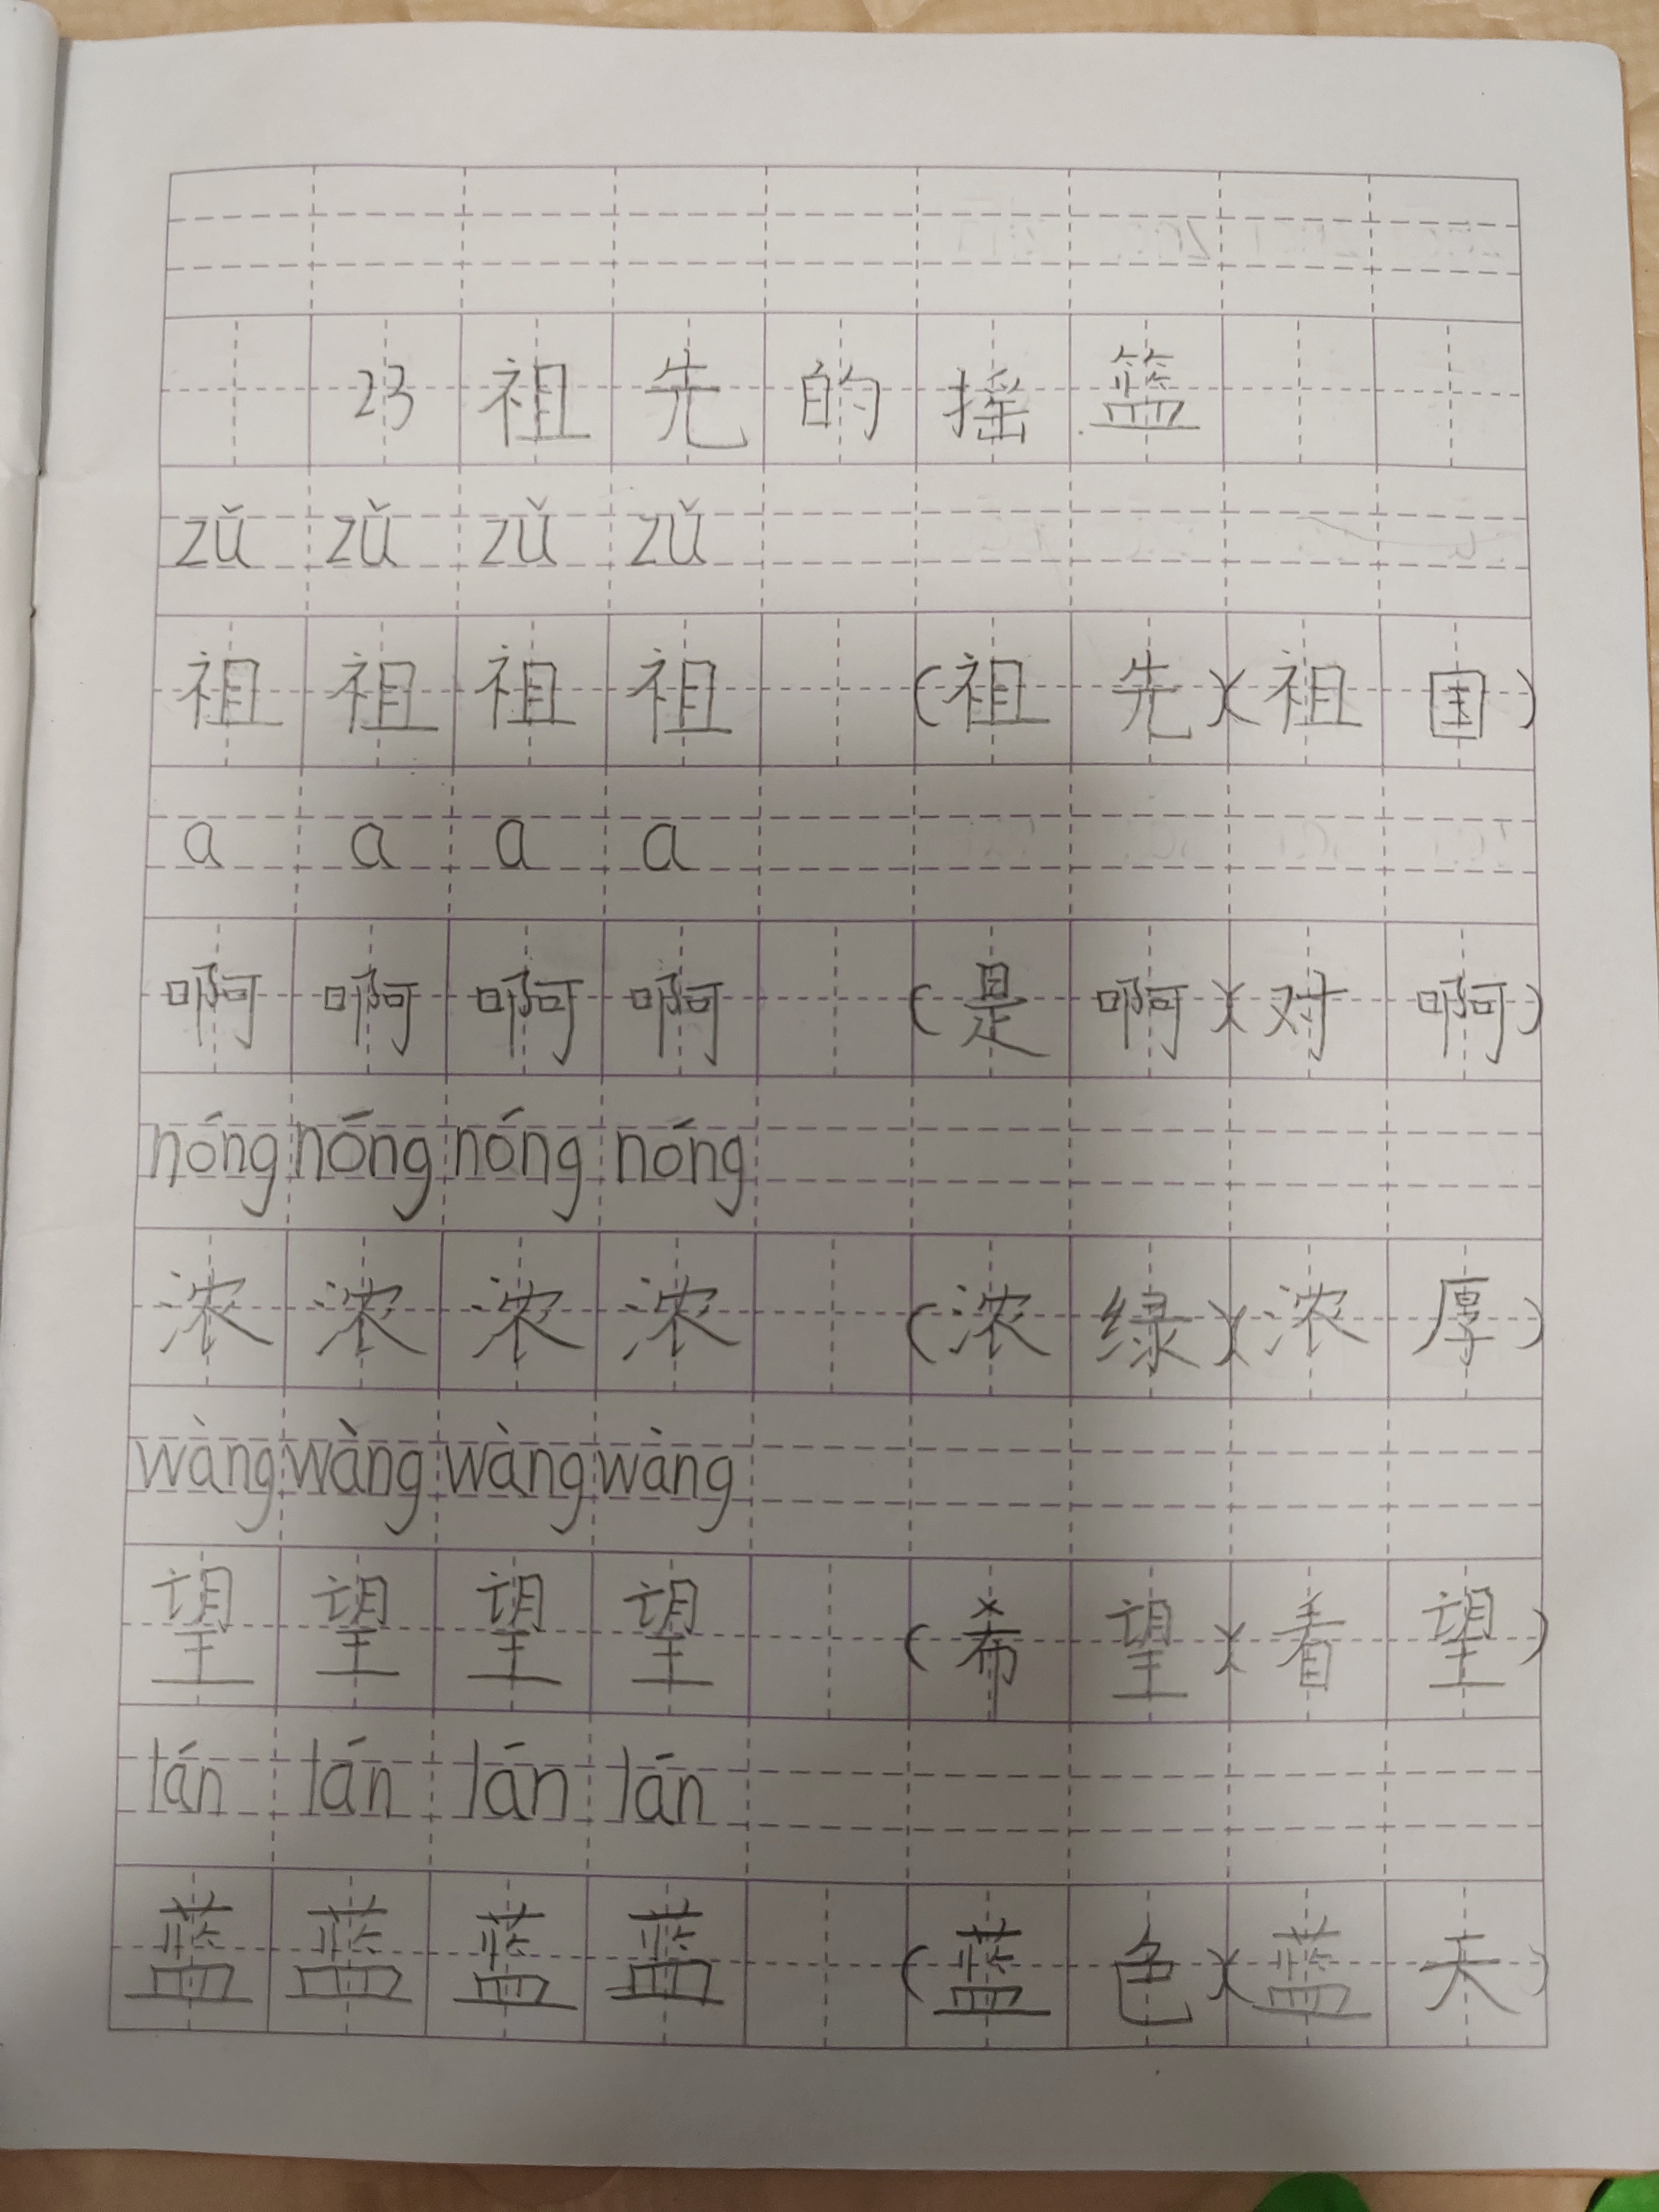 23祖先的摇篮
zǔ zǔ zǔ zǔ
祖 祖 祖 祖 (祖先)(祖国)
a a a a
啊 啊 啊 啊 (是啊)(对啊)
nóng nóng nóng nóng
浓 浓 浓 浓 (浓绿)(浓厚)
wàng wàng wàng wàng
望 望 望 望 (希望)(看望)
lán lán lán lán
蓝 蓝 蓝 蓝 (蓝色)(蓝天)